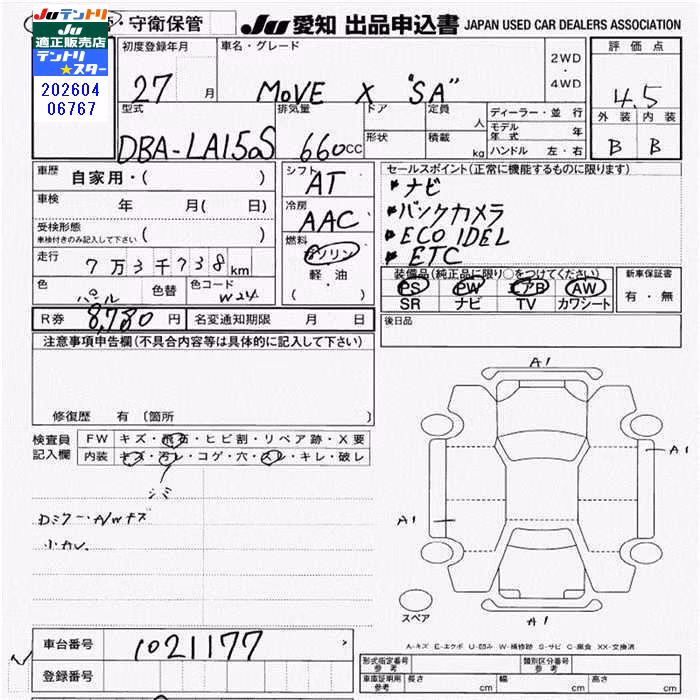 Juテントリ
Ju
適正販売店
テントリ
★スター
202604
06767
・守衛保管
Ju 愛知 出品申込書 JAPAN USED CAR DEALERS ASSOCIATION
初度登録年月
27 月
車名・グレード
MOVE X "SA"
2WD
・
4WD
評価点
4.5
外装 内装
B B
型式
DBA-LA150S
排気量
660cc
ドア
形状
定員
人
積載
kg
ディーラー・並行
モデル年式 年
ハンドル 左・右
車歴
自家用・( )
車検
年 月( 日)
受検形態
車検付きのみ記入して下さい ( )
走行
7万3千738km
色
パール
色替
色コード
W24
シフト
AT
冷房
AAC
燃料
ガソリン
軽・油
( )
セールスポイント(正常に機能するものに限ります)
ナビ
バックカメラ
ECO IDEL
ETC
装備品(純正品に限り○をつけてください)
PS PW エアB AW
SR ナビ TV カワシート
新車保証書
有・無
R券 8,780円
名変通知期限 月 日
後日品
注意事項申告欄(不具合内容等は具体的に記入して下さい)
修復歴 有〔箇所 〕
検査員
記入欄
FW キズ・飛石・ヒビ割・リペア跡・X要
内装 キズ・汚レ・コゲ・穴・スレ・キレ・破レ
シミ
Dミラー・A/Wキズ
小カレ
A1
A1
A1
A1
スペア
A-キズ E-エクボ U-凹み W-補修跡 S-サビ C-腐食 XX-交換済
車台番号
1021177
登録番号
形式指定番号
参考
類別区分番号
参考
車庫証明用
参考
長さ cm 幅 cm 高さ cm